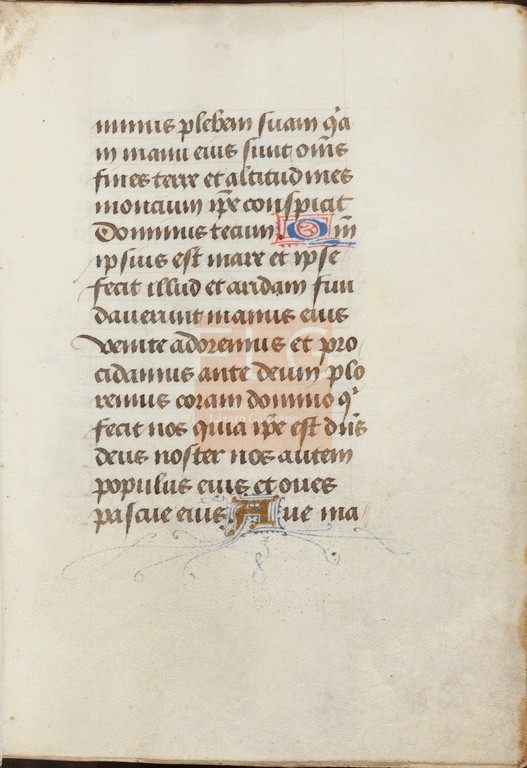 minus plebem suam q̄a
in manu eius sunt om̄s
fines terre et altitudines
moncium ip̄e conspicit
Dominus tecum. Qm̄
ipsius est mare et ipse
fecit illud et aridam fun
dauerunt manus eius
venite adoremus et pro
cidamus ante deum plo
remus coram domino qⁱ
fecit nos quia ip̄e est dn̄s
deus noster nos autem
populus eius et oues
pascue eius. Aue ma
ELG